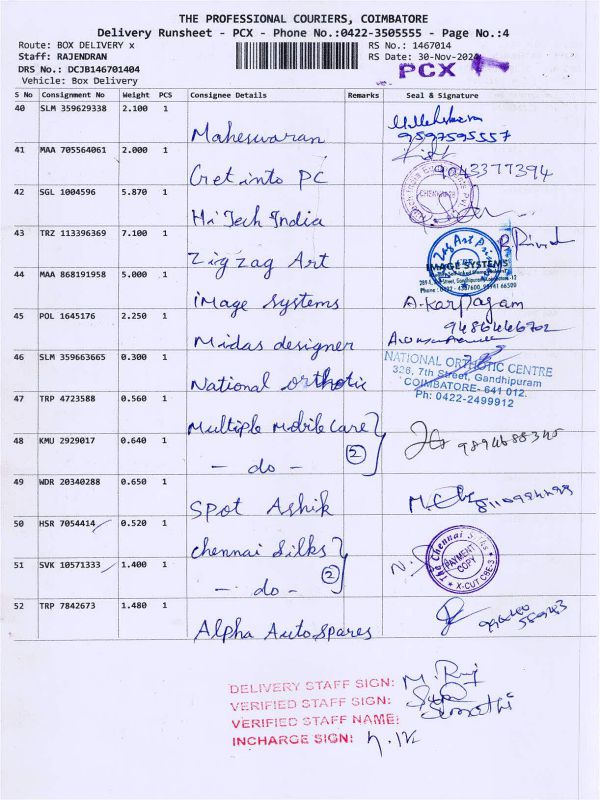 THE PROFESSIONAL COURIERS, COIMBATORE
Delivery Runsheet - PCX - Phone No.:0422-3505555 - Page No.:4
Route: BOX DELIVERY x
RS No.: 1467014
Staff: RAJENDRAN
RS Date: 30-Nov-2024
DRS No.: DCJB146701404
PCX
Vehicle: Box Delivery
S No Consignment No Weight PCS Consignee Details Remarks Seal & Signature
40 SLM 359629338 2.100 1
Maheswaran
9597595557
41 MAA 705564061 2.000 1
Get into PC
9043377394
42 SGL 1004596 5.870 1
HiTech India
43 TRZ 113396369 7.100 1
Zig Zag Art
Zag Art
44 MAA 868191958 5.000 1
IMAGE SYSTEMS
image Systems
A. Karpagam
45 POL 1645176 2.250 1
9486446702
Midas designer
46 SLM 359663665 0.300 1
National orthotic
NATIONAL ORTHOTIC CENTRE
326, 7th Street, Gandhipuram
COIMBATORE- 641 012.
Ph: 0422-2499912
47 TRP 4723588 0.560 1
Multiple Mobile Care
48 KMU 2929017 0.640 1
- do - 2
49 WDR 20340288 0.650 1
Spot Ashik
50 HSR 7054414 0.520 1
Chennai Silks
The Chennai Silks
PAYMENT
COPY
X-CUT CBE-3
51 SVK 10571333 1.400 1
- do - 2
52 TRP 7842673 1.480 1
Alpha Auto Spares
DELIVERY STAFF SIGN:
VERIFIED STAFF SIGN:
VERIFIED STAFF NAME:
INCHARGE SIGN: